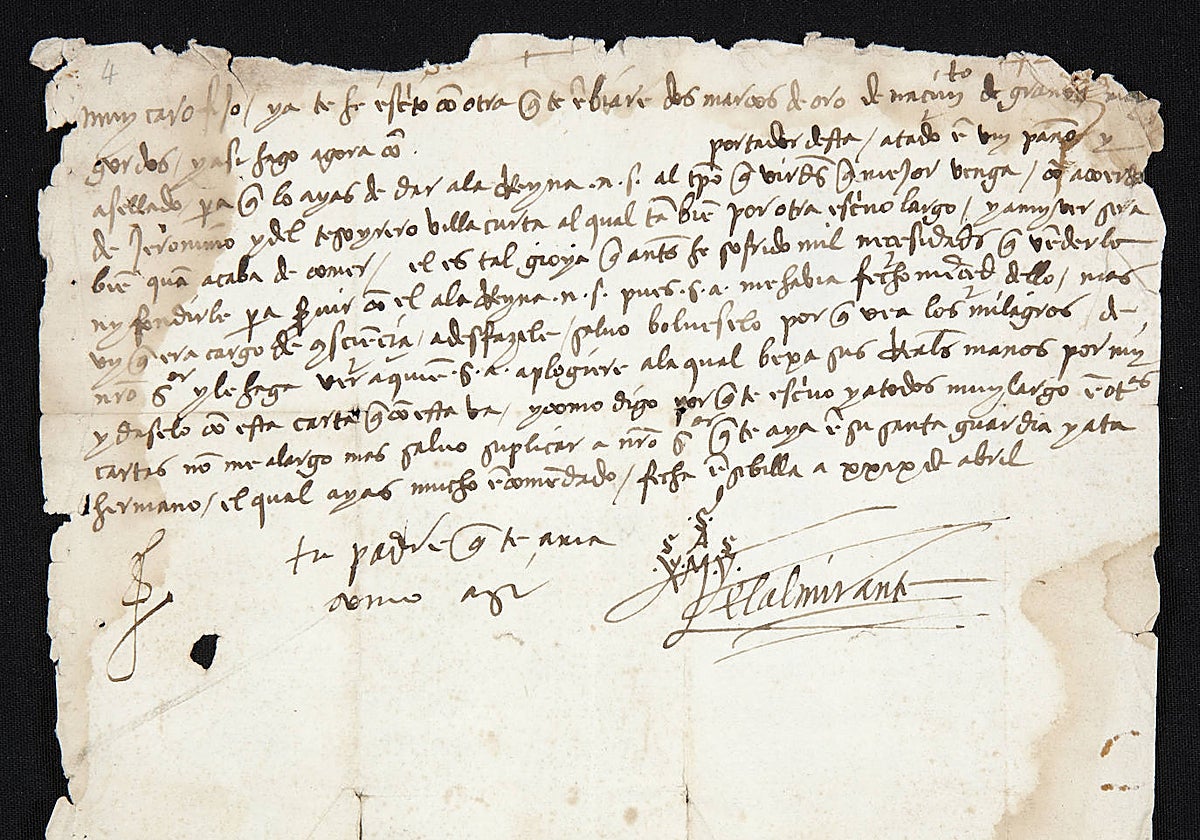 4
muy caro fijo / ya te he escrito cõ otra q̃ te ẽbiare dos marcos de oro de naçimto de granos muy
gordos / y asi hago agora cõ portador desta / atado ẽ vn paño y
asellado pa q̃ lo ayas de dar a la Reyna .n.s. al tpõ q̃ virds q̃ mejor venga / cõ acuerdo
de Jeronimo y del tesoyrero villacurta al qual tã biẽ por otra escrivo largo / y a my ver sera
biẽ quã acaba de comer / el es tal gioya q̃ ants he sofrido mil necesidads q̃ vẽderle
ny fondirle pa servir cõ el a la Reyna .n.s. pues .s.a. me habia fecho merced dello / mas
vy q̃ era cargo de cõsçiẽçia / a desfazele / salvo bolverselo por q̃ vea los milagros / de
nr̃o sor y le haga ver a quiẽ .s.a. aplogiere a la qual bexa sus Reals manos por my
y daselo cõ esta carta q̃ cõ esta va / y como digo por q̃ te escrivo y a todos muy largo ẽ otas
cartas nõ me alargo mas salvo suplicar a nr̃o sor q̃ te aya ẽ su santa guardia y a ta
hermano / el qual ayas mucho ẽcomẽdado / fecha ẽ sebilla a xxix de abril
tu padre q̃ te ama
como a sí
.S.
.S.A.S.
X M Y
El almirante